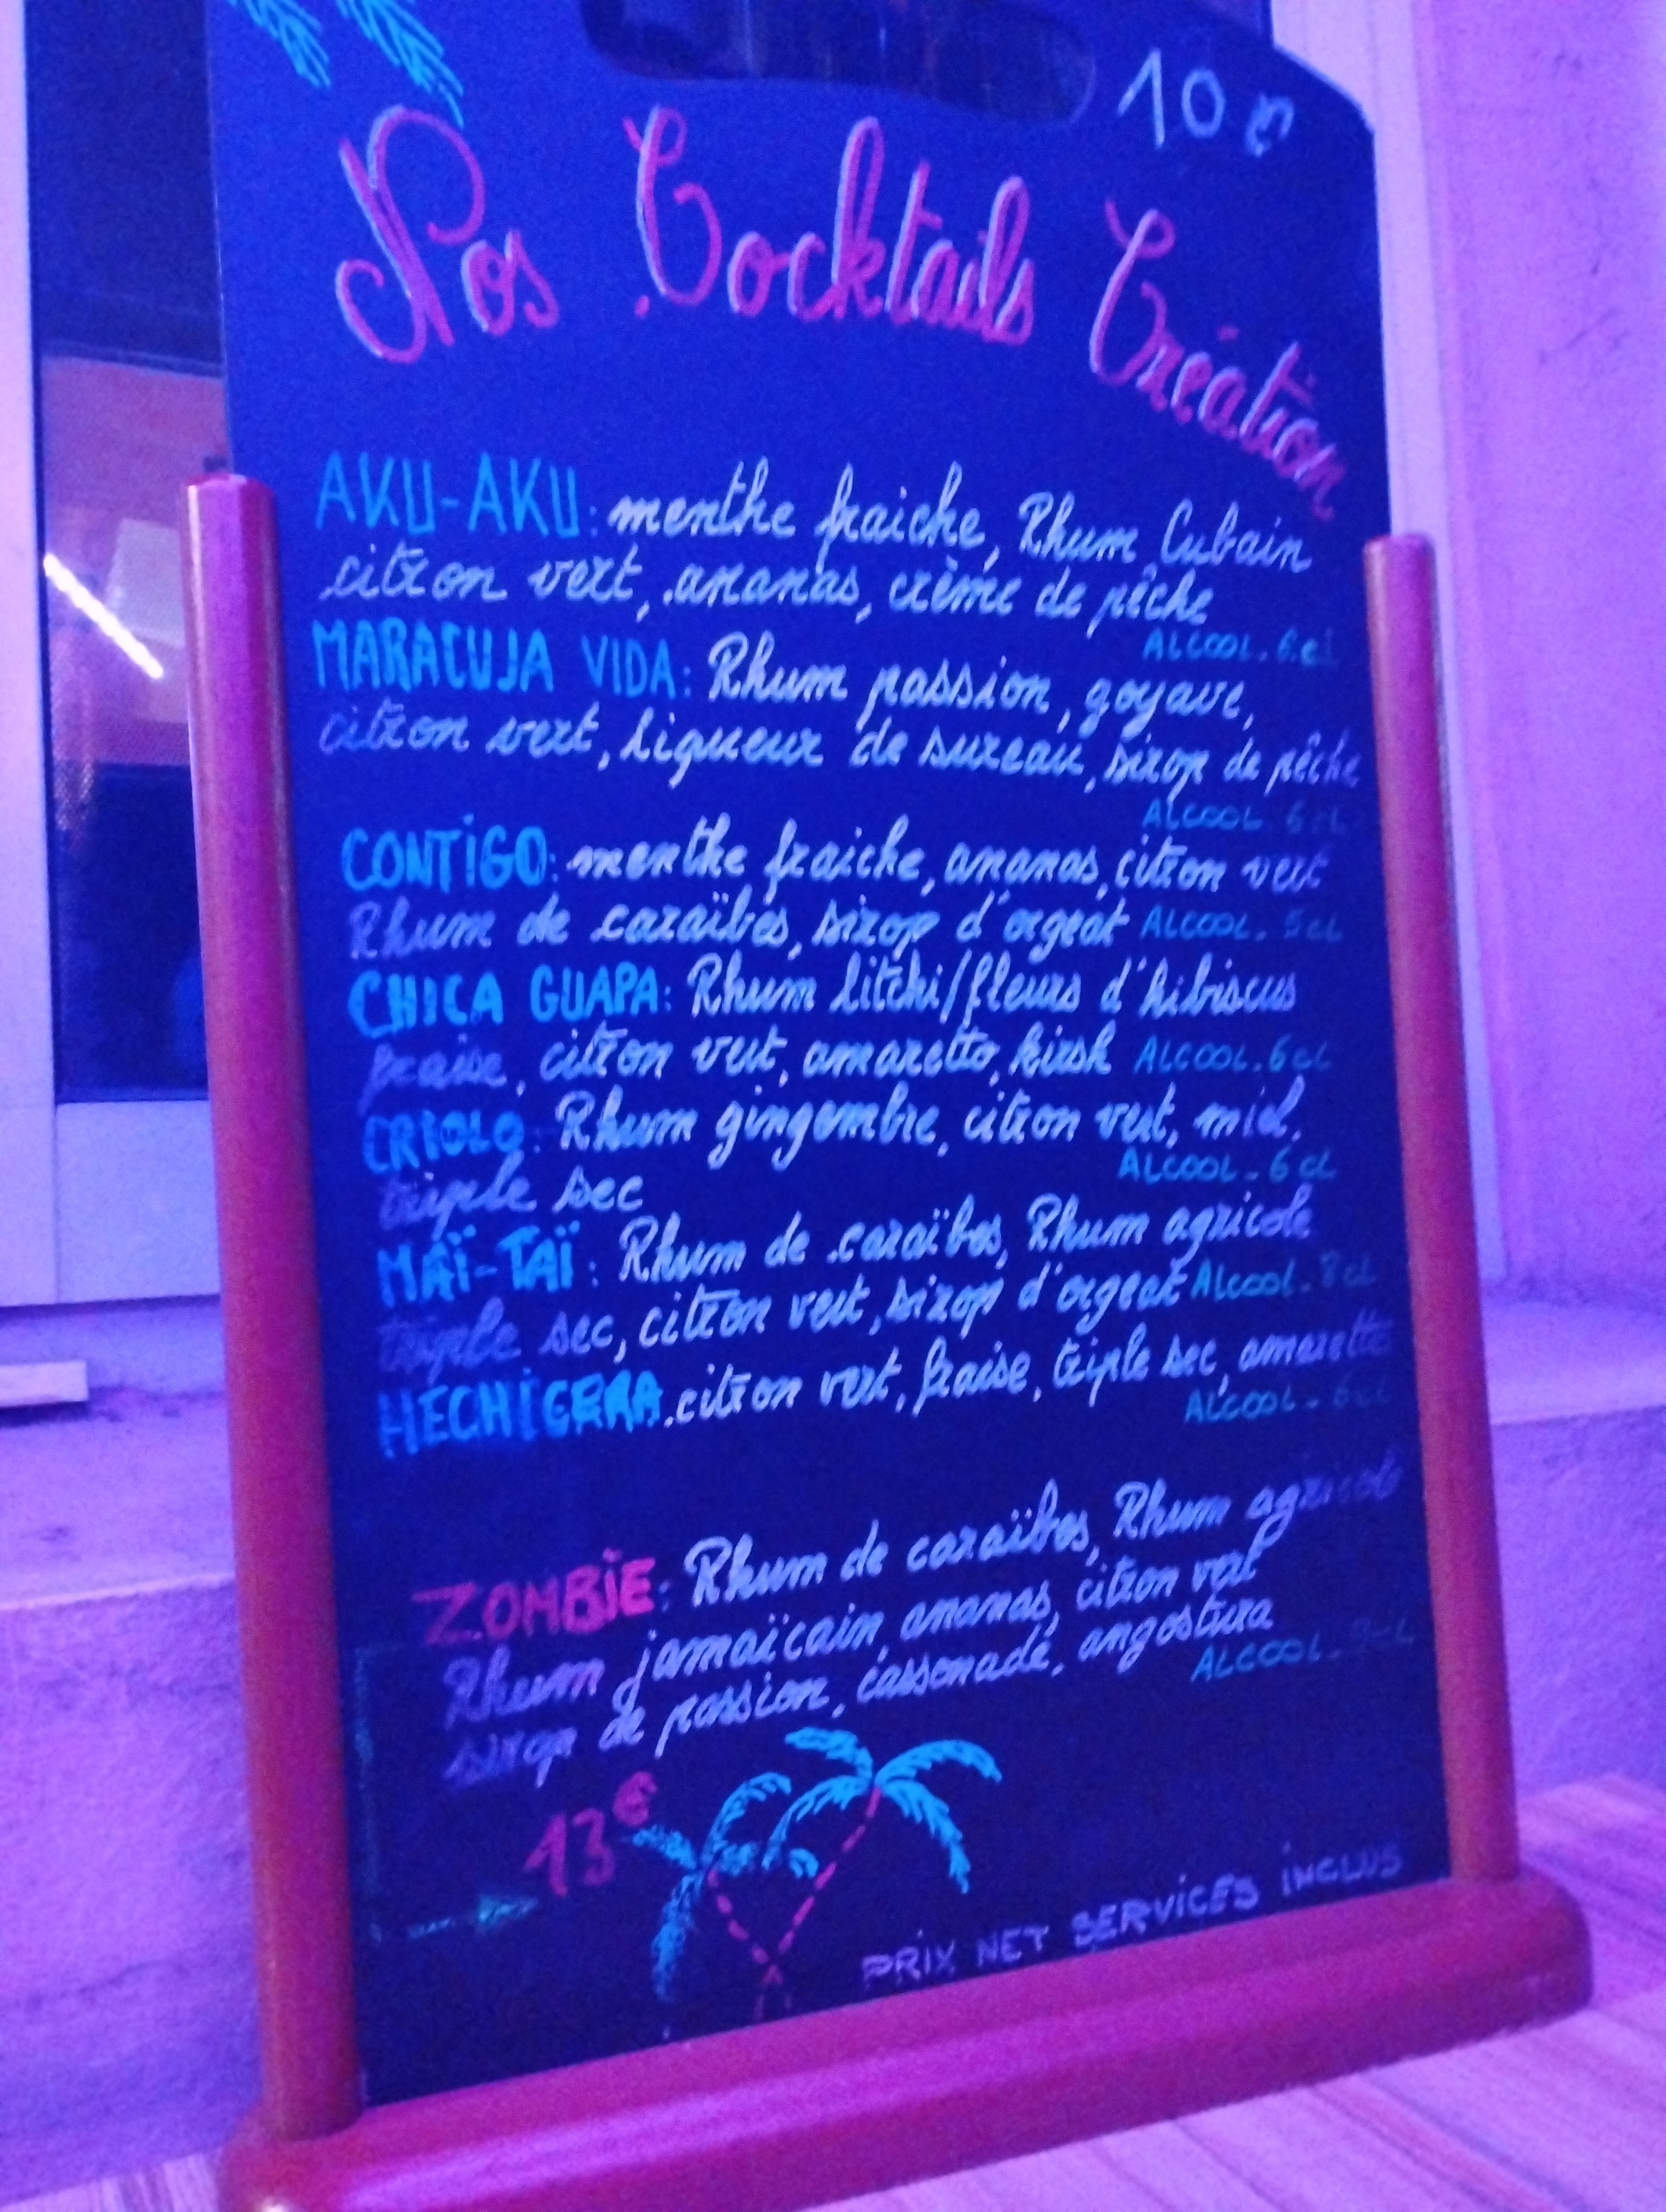 10 €
Nos Cocktails Création
AKU-AKU: menthe fraiche, Rhum Cubain
citron vert, ananas, crème de pêche
ALCOOL. 6 cl
MARACUJA VIDA: Rhum passion, goyave,
citron vert, liqueur de sureau, sirop de pêche
ALCOOL 6 cL
CONTiGO: menthe fraiche, ananas, citron vert
Rhum de caraïbes, sirop d'orgeat ALCOOL. 5 cL
CHICA GUAPA: Rhum litchi/fleurs d'hibiscus
fraise, citron vert, amaretto, kirsh ALCOOL. 6 cL
CRIOLO: Rhum gingembre, citron vert, miel,
ALCOOL - 6 cL
triple sec
MAÏ-TAÏ: Rhum de caraïbes, Rhum agricole
triple sec, citron vert, sirop d'orgeat Alcool. 8 cL
HECHiCERA. citron vert, fraise, triple sec, amaretto
ALCOOL - 6 cL
ZOMBiE: Rhum de caraïbes, Rhum agricole
Rhum jamaïcain, ananas, citron vert
sirop de passion, cassonade, angostura
ALCOOL - cL
13€
PRiX NET SERViCES iNCLUS